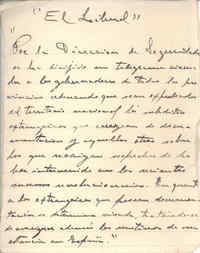 "El Liberal"
"Por la Direccion de Seguridad
se ha dirigido un telegrama circu
a los gobernadores de todas las pro
vincias ordenando que sean expulsados
del territorio nacional los subditos
extranjeros que carezcan de docu
mentacion y aquellos otros sobre
los que recaigan sospechas de ha
ber intervenido en los recientes
sucesos revolucionarios. En cuanto
a los extranjeros que posean documen
tacion se
averigue además los motivos de su
estancia en España."